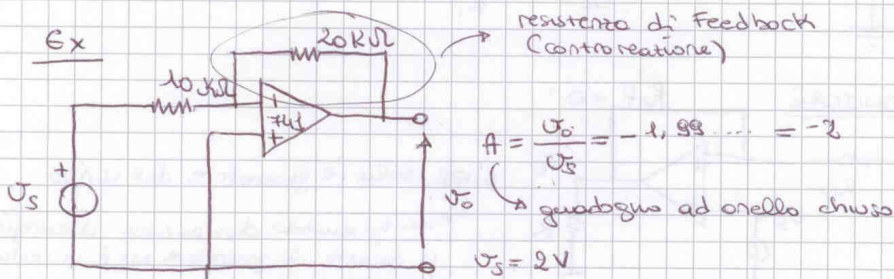 Ex
resistenza di Feedback
(controreazione)
20KΩ
10KΩ
-
741
+
+
υs
υo
A = υo/υs = -1,99.... = -2
guadagno ad anello chiuso
υs = 2V